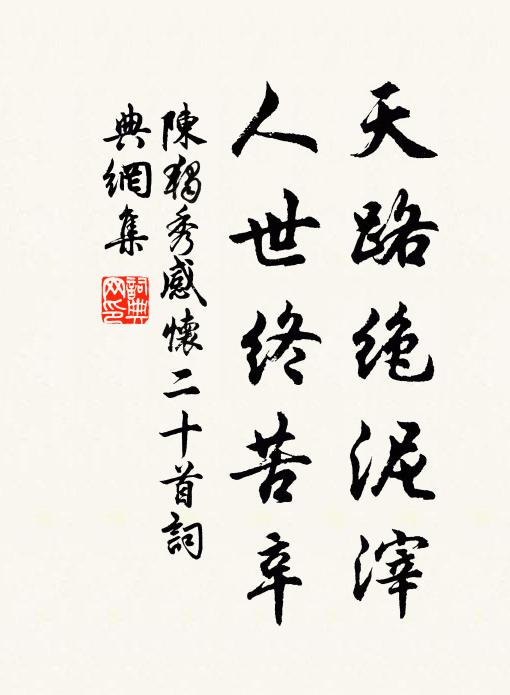 天路绝泥滓
人世终苦辛
陳獨秀感懷二十首詞
典網集
詞典网印